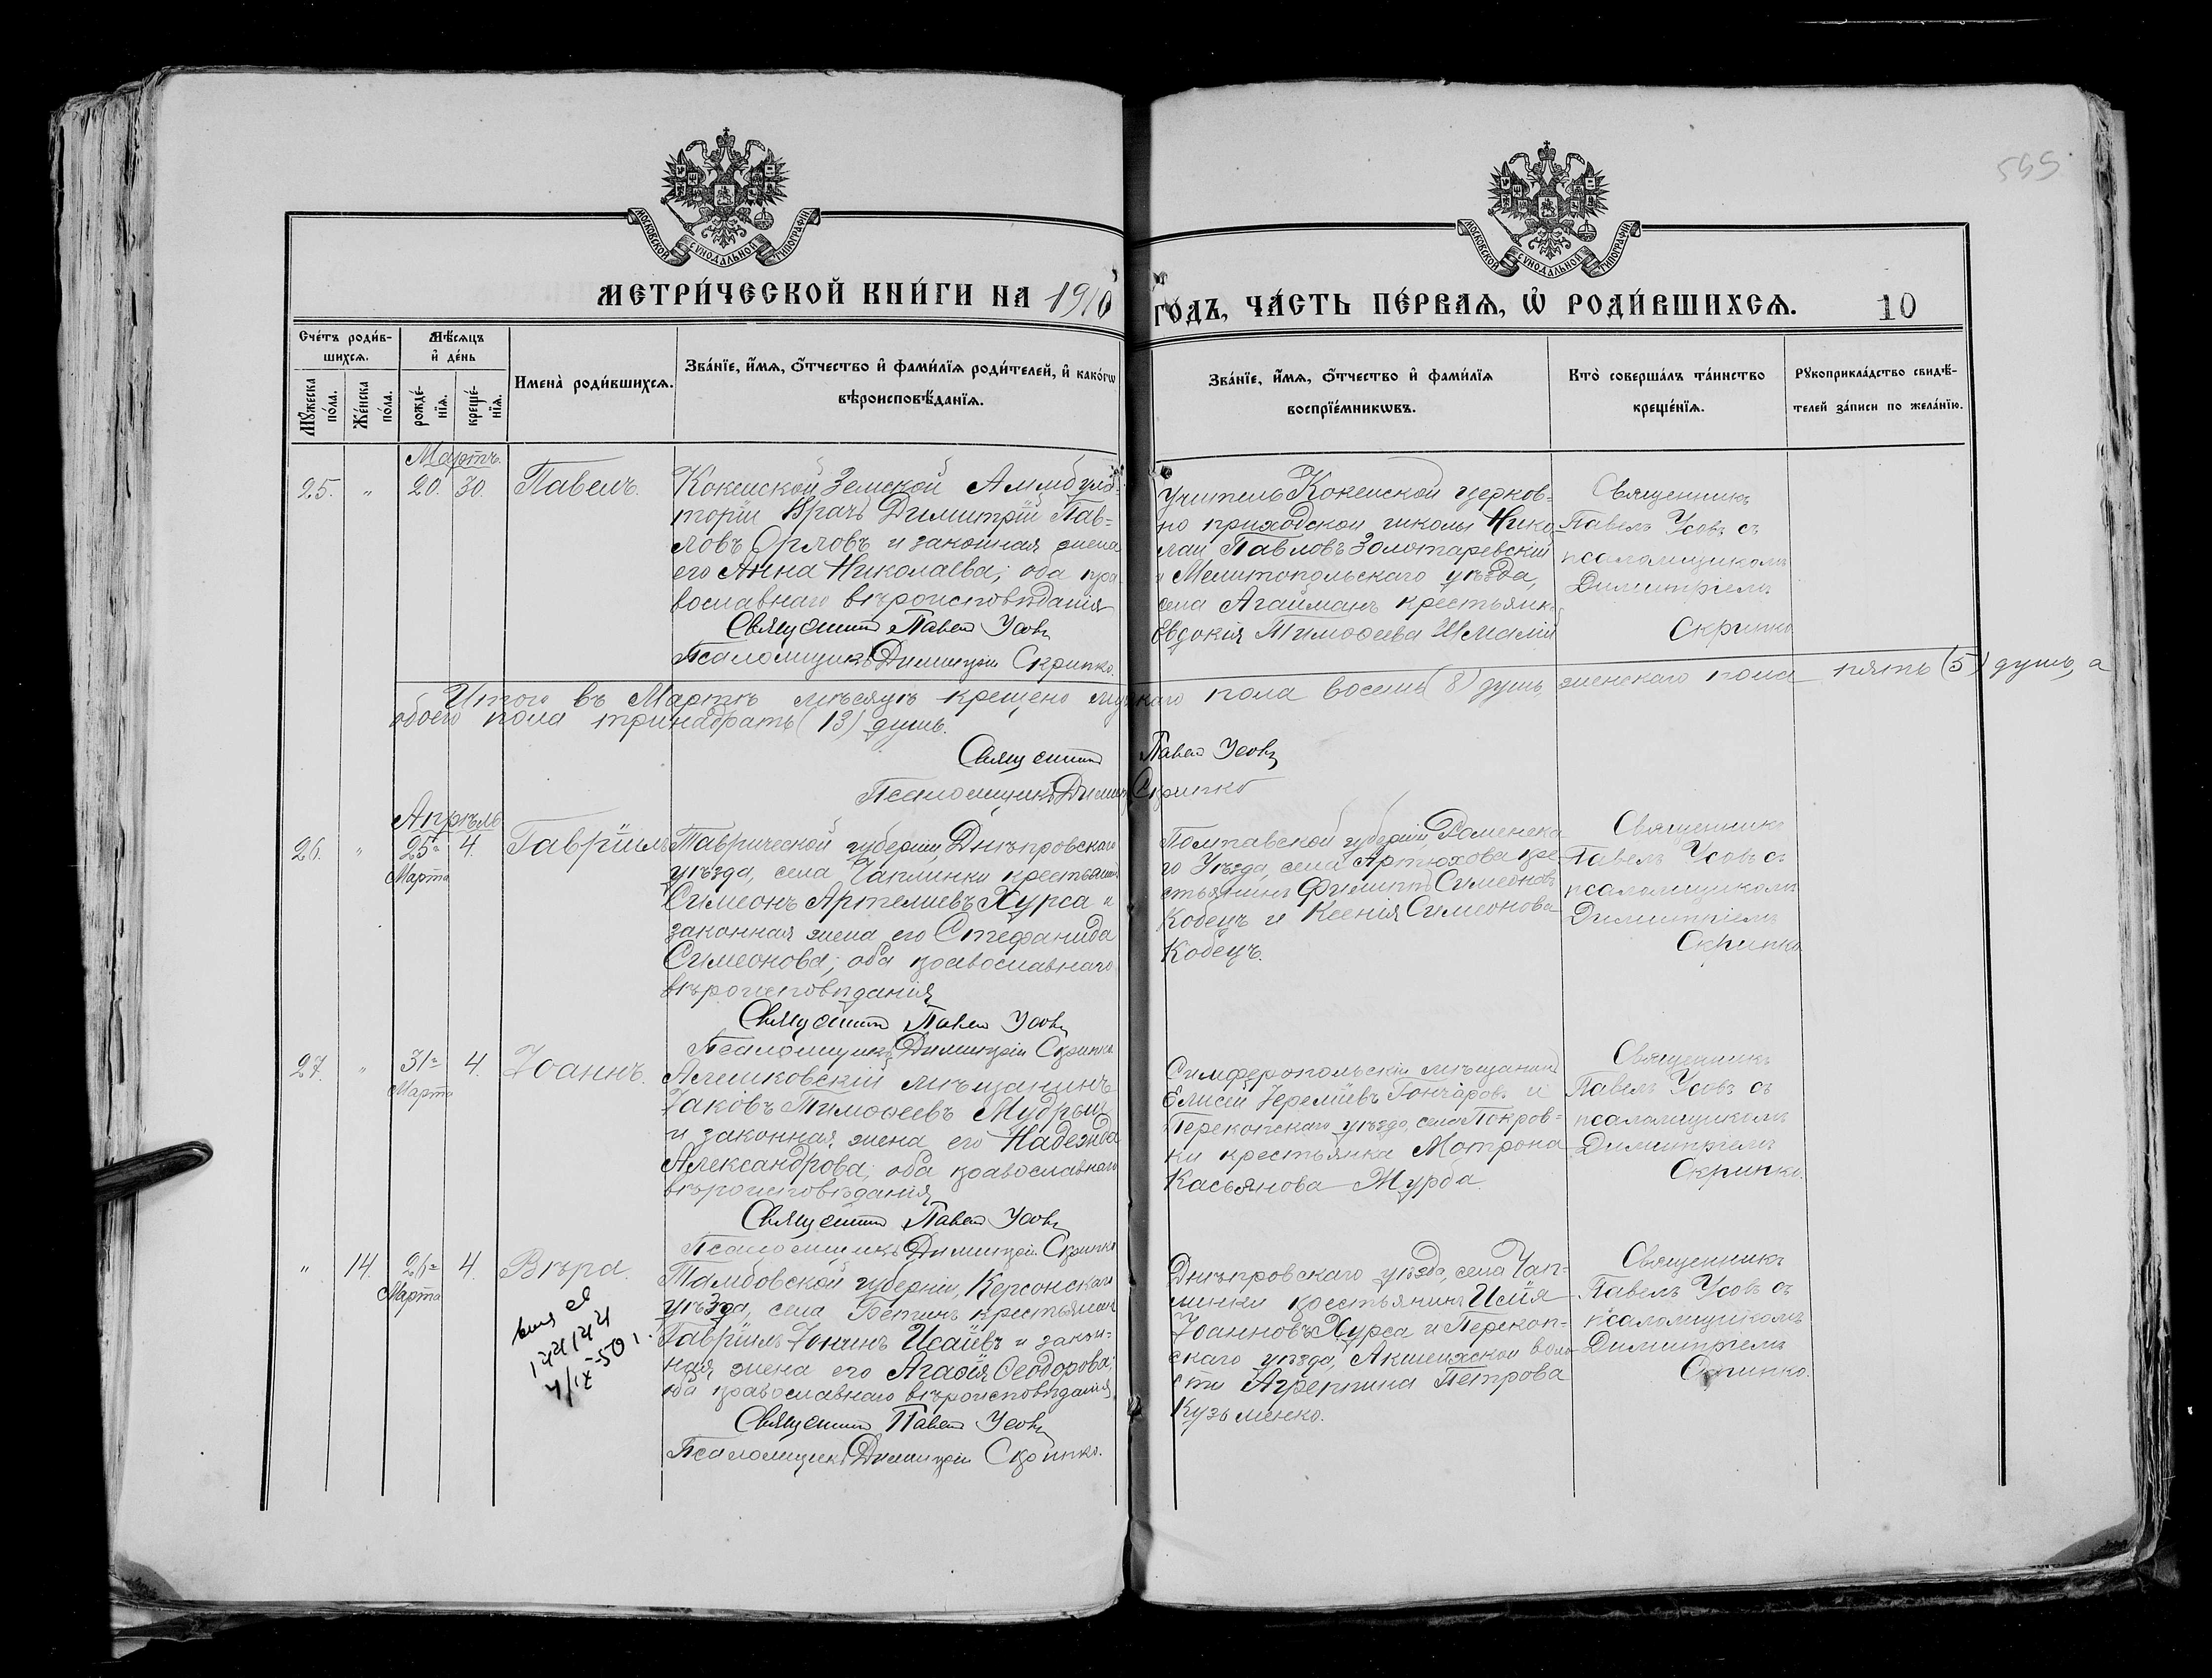 565
МОСКОВСКОЙ СѴНОДАЛЬНОЙ ТИПОГРАФІИ
МОСКОВСКОЙ СѴНОДАЛЬНОЙ ТИПОГРАФІИ
МЕТРИ́ЧЕСКОЙ КНИ́ГИ НА 1910
ГОДЪ, ЧА́СТЬ ПЕ́РВАѦ, Ѽ РОДИ́ВШИХСѦ. 10
Сче́тъ роди́в-
шихсѧ.
Мꙋ́жеска по́ла.
Же́нска по́ла.
Мѣ́сѧцъ и҆ де́нь
рожде́-
нїѧ.
креще́-
нїѧ.
И҆мена̀ роди́вшихсѧ.
Зва́нїе, и҆́мѧ, ѻ҆́тчество и҆ фами́лїѧ роди́телей, и҆ како́гѡ
вѣроисповѣ́данїѧ.
Зва́нїе, и҆́мѧ, ѻ҆́тчество и҆ фами́лїѧ
воспрїе́мникѡвъ.
Кто̀ соверша́лъ та́инство
креще́нїѧ.
Рꙋкоприкла́дство свидѣ́-
телей за́писи по жела́нїю.
Мартъ.
25. " 20. 30. Павелъ.
Кокейской Земской Амбула-
торіи Врачъ Димитрій Пав-
ловъ Орловъ и законная жена
его Анна Николаева; оба пра-
вославнаго вѣроисповѣданія
Священникъ Павелъ Усовъ
Псаломщикъ Димитрій Скрипко.
Учитель Кокейской церков-
но приходской школы Нико-
лай Павловъ Золотаревскій
и Мелитопольскаго уѣзда,
села Агайманъ крестьянка
Евдокія Тимоѳеева
Священникъ
Павелъ Усовъ съ
псаломщикомъ
Димитріемъ
Скрипко
Итого въ Мартѣ мѣсяцѣ крещено мужскаго пола восемь (8) душъ женскаго пола пять (5) душъ, а
обоего пола тринадцать (13) душъ.
Священникъ Павелъ Усовъ
Псаломщикъ Димитрій Скрипко
Апрѣль
26. " 25го Марта 4. Гавріилъ
Таврической губерніи, Днѣпровскаго
уѣзда, села Чаплинки крестьянинъ
Симеонъ Артемиевъ Хурса и
законная жена его Стефанида
Симеонова; оба православнаго
вѣроисповѣданія
Священникъ Павелъ Усовъ
Псаломщикъ Димитрій Скрипко
Полтавской губерніи, Роменска-
го Уѣзда, села Артюхова кре-
стьянинъ Филиппъ Симеоновъ
Кобецъ и Ксенія Симеонова
Кобецъ.
Священникъ
Павелъ Усовъ съ
псаломщикомъ
Димитріемъ
Скрипко
27. " 31го Марта 4. Іоаннъ.
Алешковскій мѣщанинъ
Іаковъ Тимоѳеевъ Мудрый
и законная жена его Надежда
Александрова; оба православнаго
вѣроисповѣданія
Священникъ Павелъ Усовъ
Псаломщикъ Димитрій Скрипко
Симферопольскій мѣщанинъ
Елисей Іереміевъ Гончаровъ и
Перекопскаго уѣзда, села Покров-
ки крестьянка Мотрона
Касьянова Журба.
Священникъ
Павелъ Усовъ съ
псаломщикомъ
Димитріемъ
Скрипко.
" 14. 26го Марта 4. Вѣра.
Тамбовской губерніи, Керсонскаго
уѣзда, села Бетинъ крестьянинъ
Гавріилъ Іонинъ Исаевъ и закон-
ная жена его Агаѳія Ѳеодорова;
оба православнаго вѣроисповѣданія
Священникъ Павелъ Усовъ
Псаломщикъ Димитрій Скрипко.
Днѣпровскаго уѣзда, села Чап-
линки крестьянинъ Исаія
Іоанновъ Хурса и Перекоп-
скаго уѣзда, воло-
сти Агреппина Петрова
Кузьменко.
Священникъ
Павелъ Усовъ съ
псаломщикомъ
Димитріемъ
Скрипко.